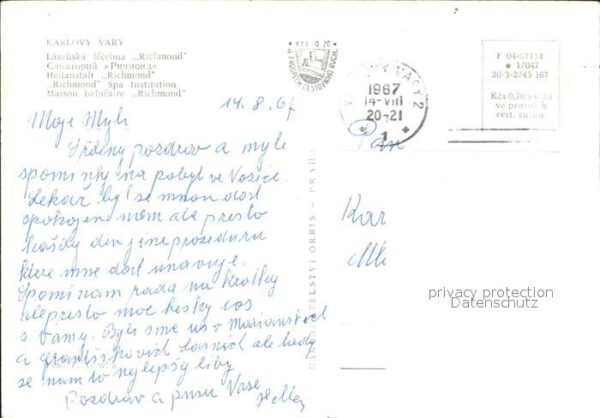 KARLOVY VARY
Lázeňská léčebna „Richmond"
Санаторий »Ричмонд«
Heilanstalt „Richmond"
„Richmond" Spa Institution
Maison balnéaire „Richmond"
Kčs 0,20
1967
14-VIII
20-21
1
F 04-61114
17047
20-3-2745 167
Kčs 0,70
ve prospěch
cest. ruchu
14.8.67
Moje Myli
Srdečny pozdrav a myle
spominky na pobyt ve Vozice.
Lekař byl se mnou dost
spokojen mam ale presto
každy den jene prozeduru
ktere mne dost unavuje.
Spominam rada na kratky
alepresto moc hesky čas
s Vamy. Byli sme už v Marianskych
a Lasních ale tady
se nam to nejlepšy liby
Pozdrav a pusu Vase
Pan
Kar
ORBIS - PRAHA
privacy protection
Datenschutz